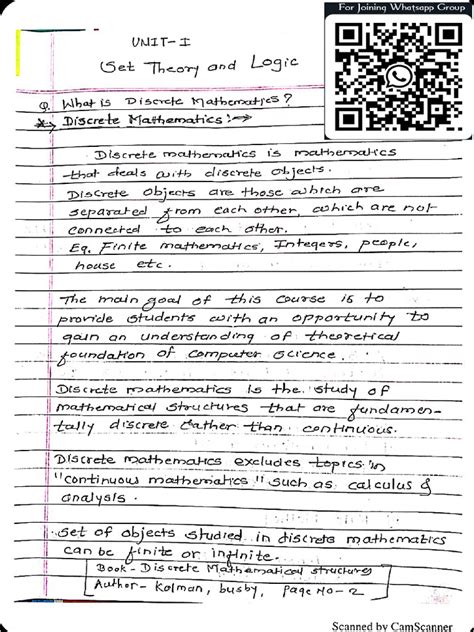 For Joining Whatsapp Group
UNIT-I
Set Theory and Logic
Q. What is Discrete Mathematics?
* Discrete Mathematics:→
Discrete mathematics is mathematics
that deals with discrete objects.
Discrete Objects are those which are
separated from each other, which are not
connected to each other.
Eg. Finite mathematics, Integers, people,
house etc.
The main goal of this course is to
provide students with an opportunity to
gain an understanding of theoretical
foundation of computer science.
Discrete mathematics is the study of
mathematical structures that are fundamen-
tally discrete rather than continuous.
Discrete mathematics excludes topics in
"continuous mathematics" such as calculus &
analysis.
Set of objects studied in discrete mathematics
can be finite or infinite.
Book - Discrete Mathematical structures
Author - Kolman, busby, Page No - 2
Scanned by CamScanner